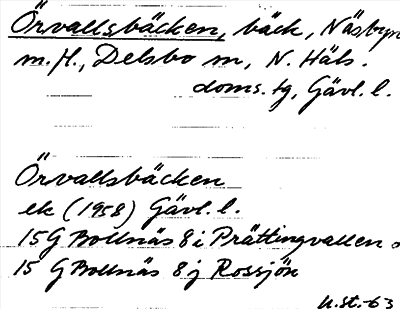 Örvallsbäcken, bäck, Näsbyn
m.fl., Delsbo sn, N. Häls.
doms. tg, Gävl. l.
Örvallsbäcken
ek (1958) Gävl. l.
15G Bollnäs 8i Prättingvallen o
15 G Bollnäs 8j Rossjön
U.St.-63